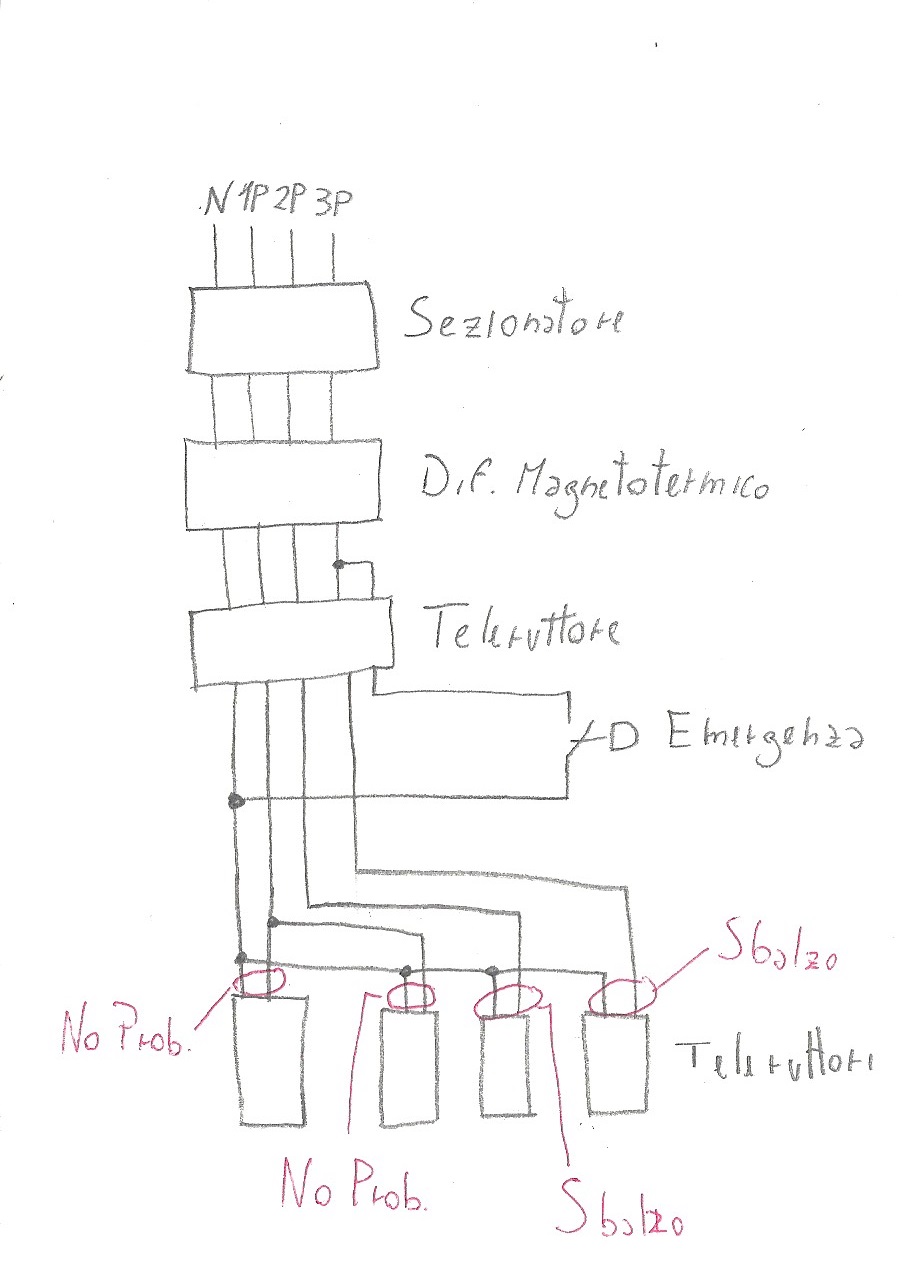 N 1P 2P 3P
Sezionatore
Dif. Magnetotermico
Teleruttore
Emergenza
Sbalzo
No Prob.
Teleruttori
No Prob.
Sbalzo